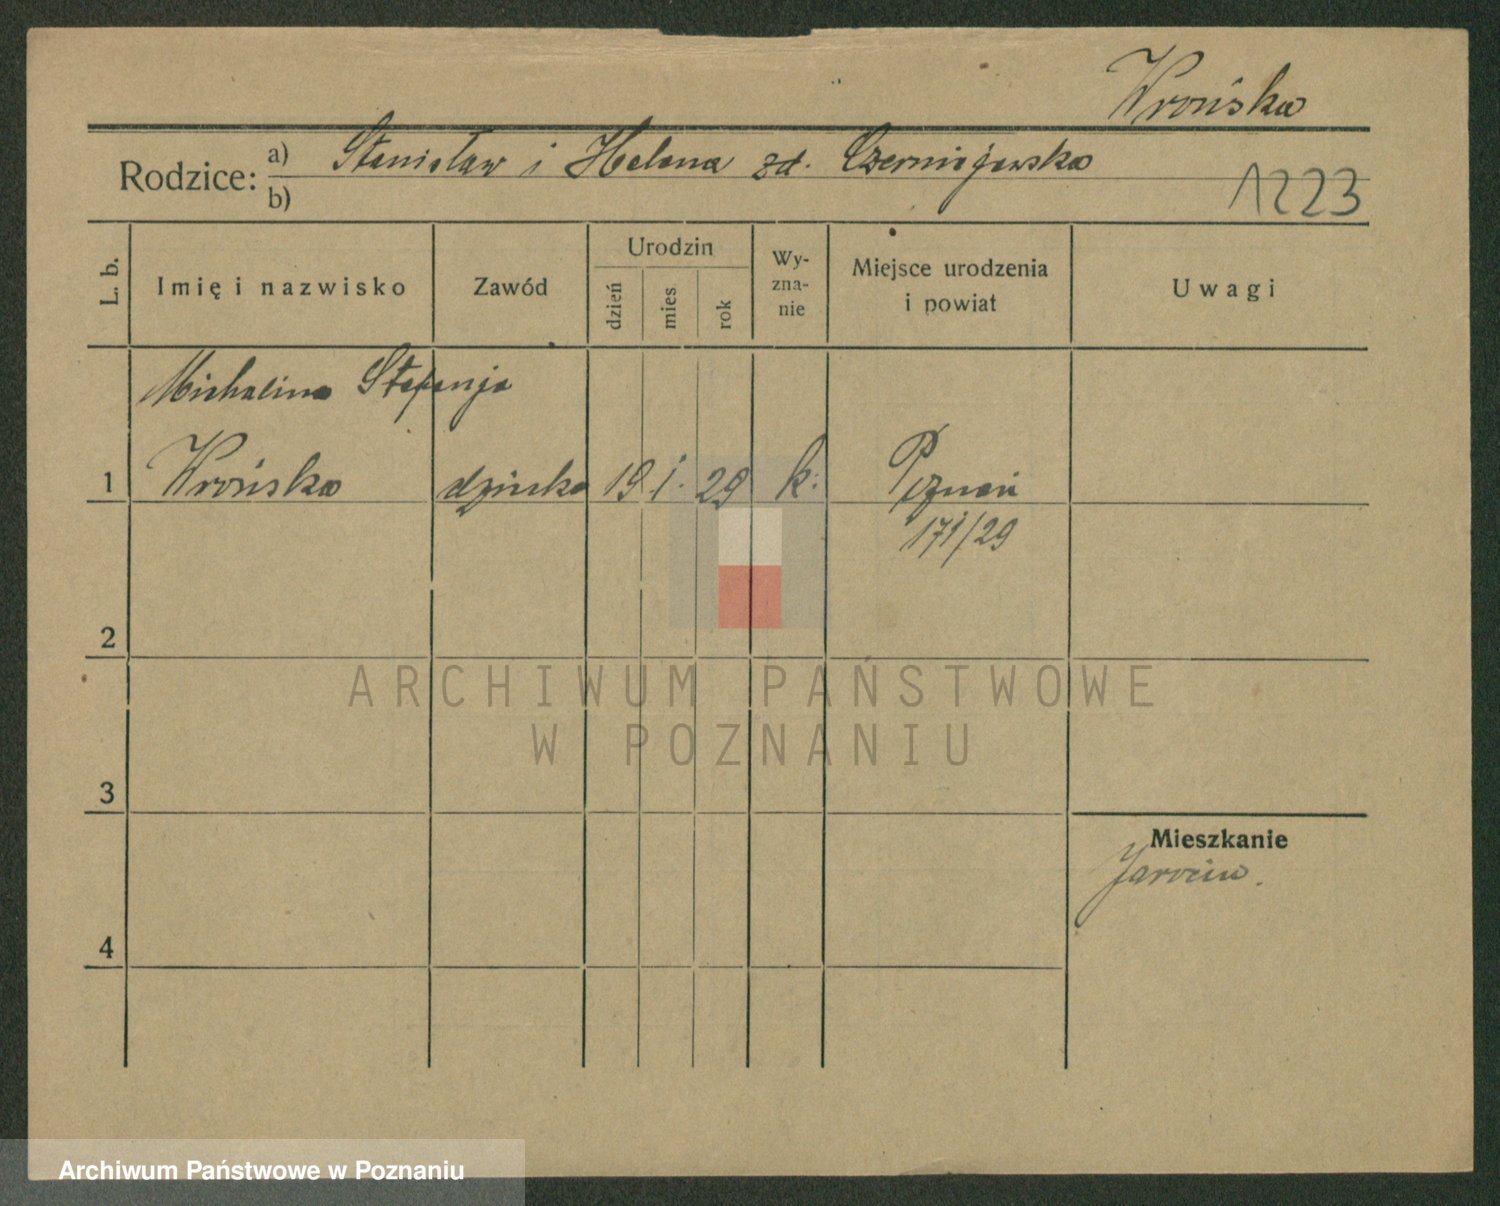 Wrońska
Rodzice: a) Stanisław i Helena zd. Czerniejewska
b)
1223
L. b.
Imię i nazwisko
Zawód
Urodzin
dzień
mies
rok
Wy-
zna-
nie
Miejsce urodzenia
i powiat
Uwagi
Michalina Stefanja
1 Wrońska dziecko 19 1. 29 k. Poznań
171/29
2
ARCHIWUM PAŃSTWOWE
W POZNANIU
3
Mieszkanie
Jarocin.
4
Archiwum Państwowe w Poznaniu